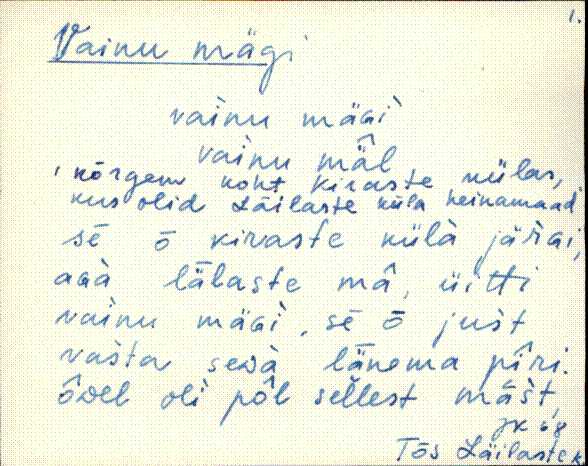 1.
Vainu mägi
vainu mäGì
vainu mâl
'kõrgem koht Kiraste külas,
kus olid Läilaste küla heinamaad'
sē ō kiraste külà järGi,
aGà lälaste mâ, üitti
vainu mäGì, sē ō just
vasta seDà länema pîri.
ôDel oli pôl sellest mäšt,
JK 68
Tõs Läilaste k